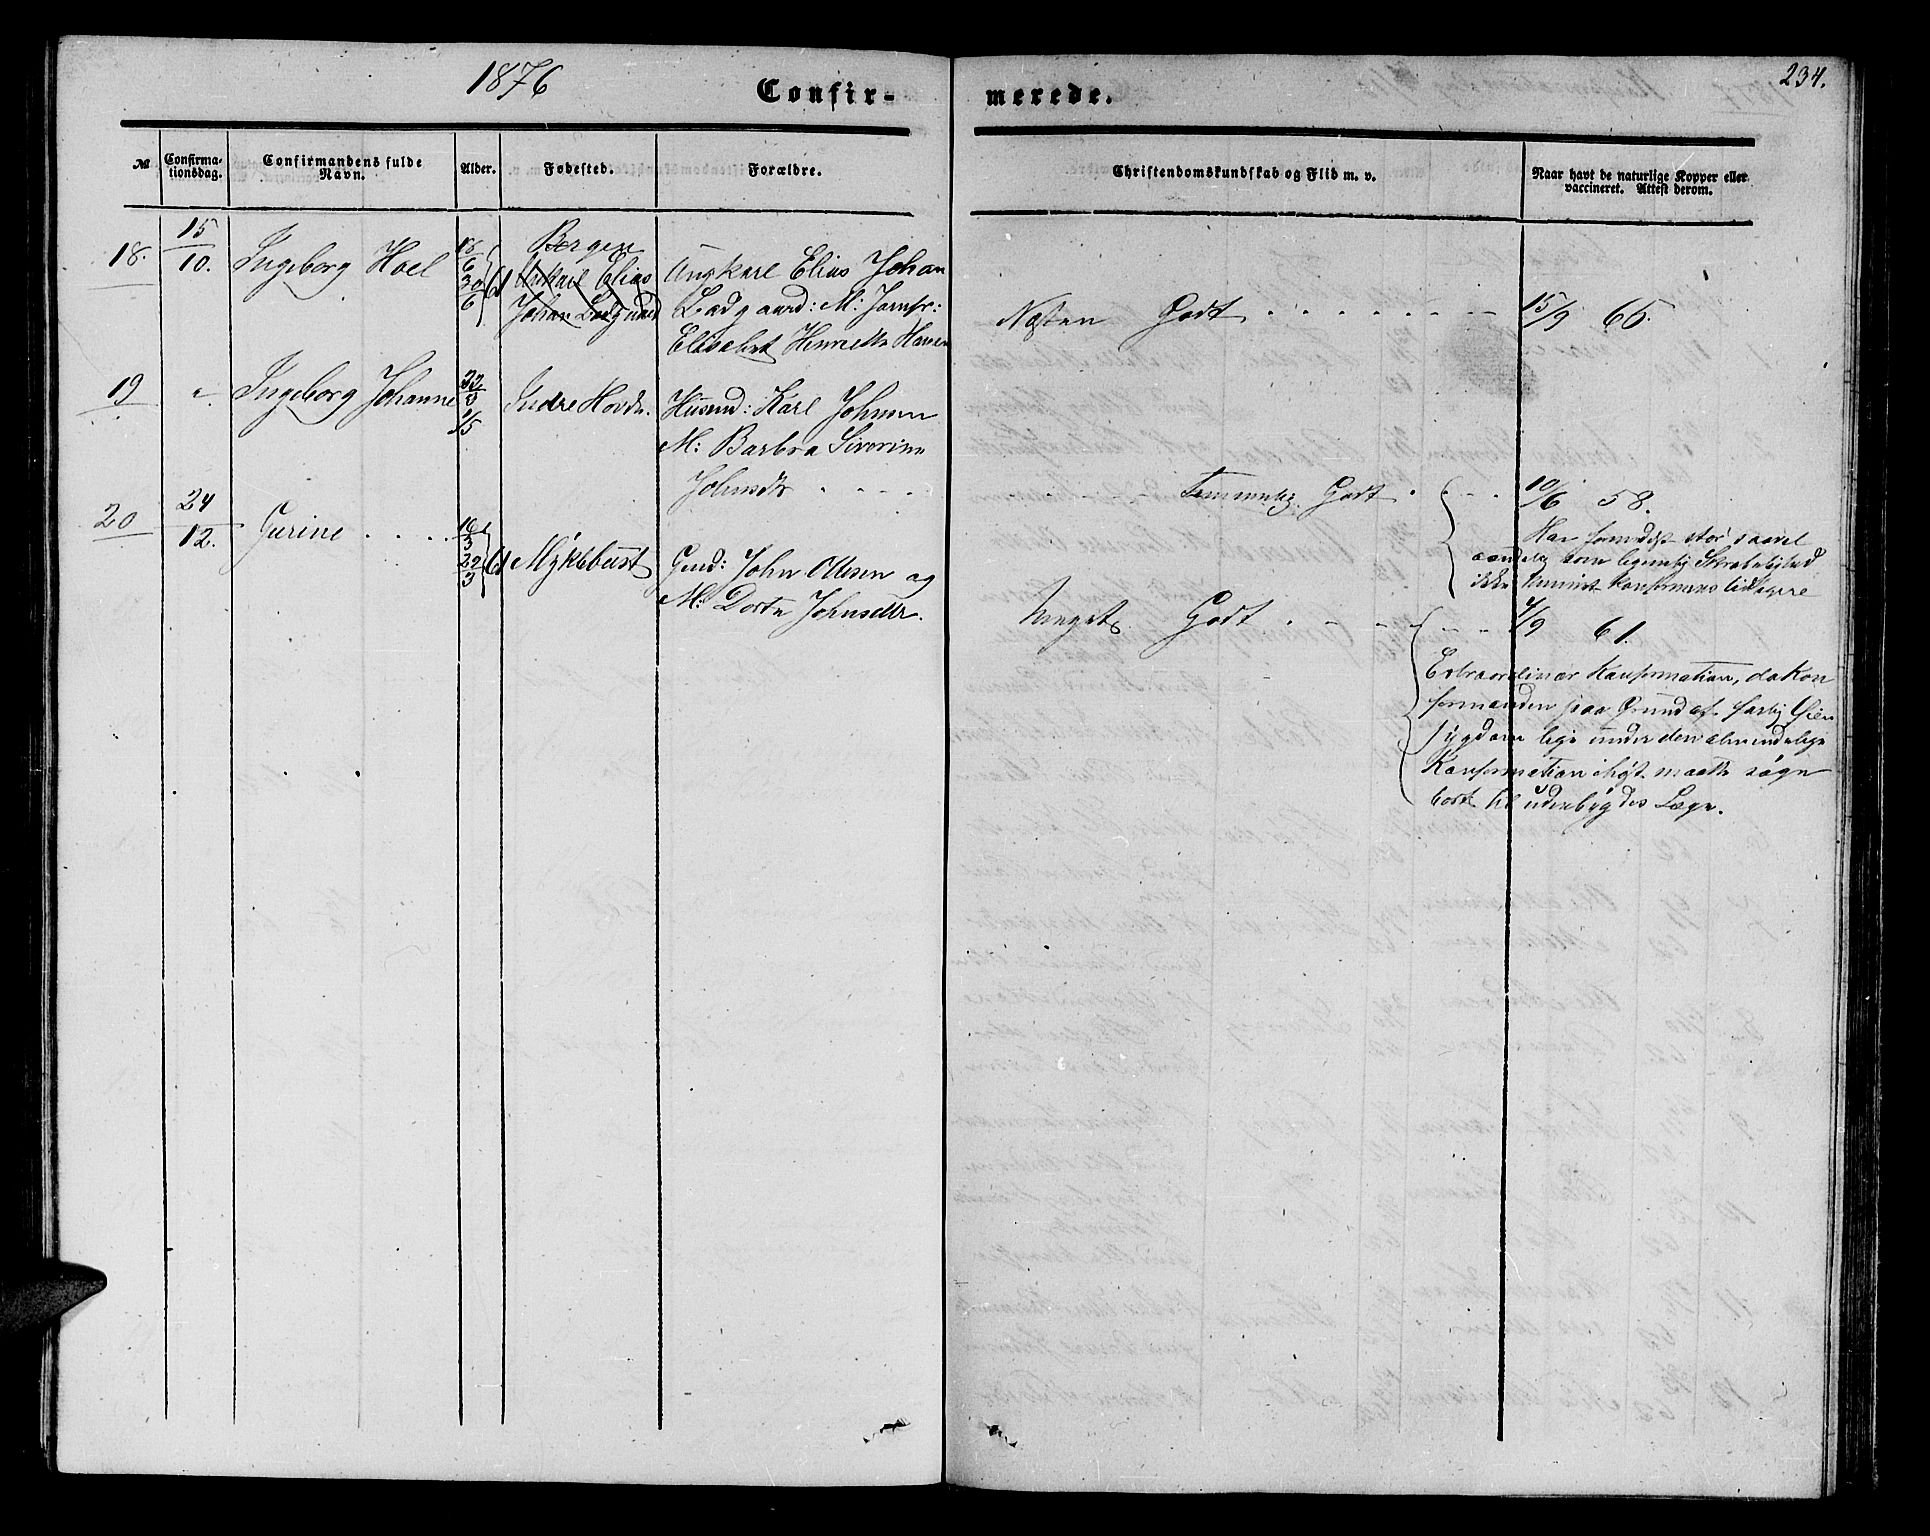 1876
Confir-
merede.
234.
№
Confirma-
tionsdag.
Confirmandens fulde
Navn.
Alder.
Fødested.
Forældre.
Christendomskundskab og Flid m. v.
Naar havt de naturlige Kopper eller
vaccineret. Attest derom.
18.
15
10.
Ingeborg Hoel
Bergen
Elias
Johan Ladgaard
Ungkarl Elias Johan
Ladgaard: M: Jomfr:
Elisabet Henriette Hansen
Næsten Godt
15/9 65.
19
Ingeborg Johanne
Indre Hovde.
Husmd: Karl Johnsen
M: Barbra Sivorine
Johnsdtr
Temmelig Godt
10/6 58.
Har formedelst stor saavel
aandelig som legemlig Skrøbelighed
ikke kunnet konfirmeres tidligere
20
24
12.
Gurine
61
Myklebust
Gmd: John Olsen og
M: Dorte Johnsdtr.
Meget Godt
7/9 61.
Extraordinær Konfirmation, da Kon
firmanden paa Grund af farlig Øien
sygdom lige under den almindelige
Konfirmation i høst maatte søge
bort til udenbygdes Læge.